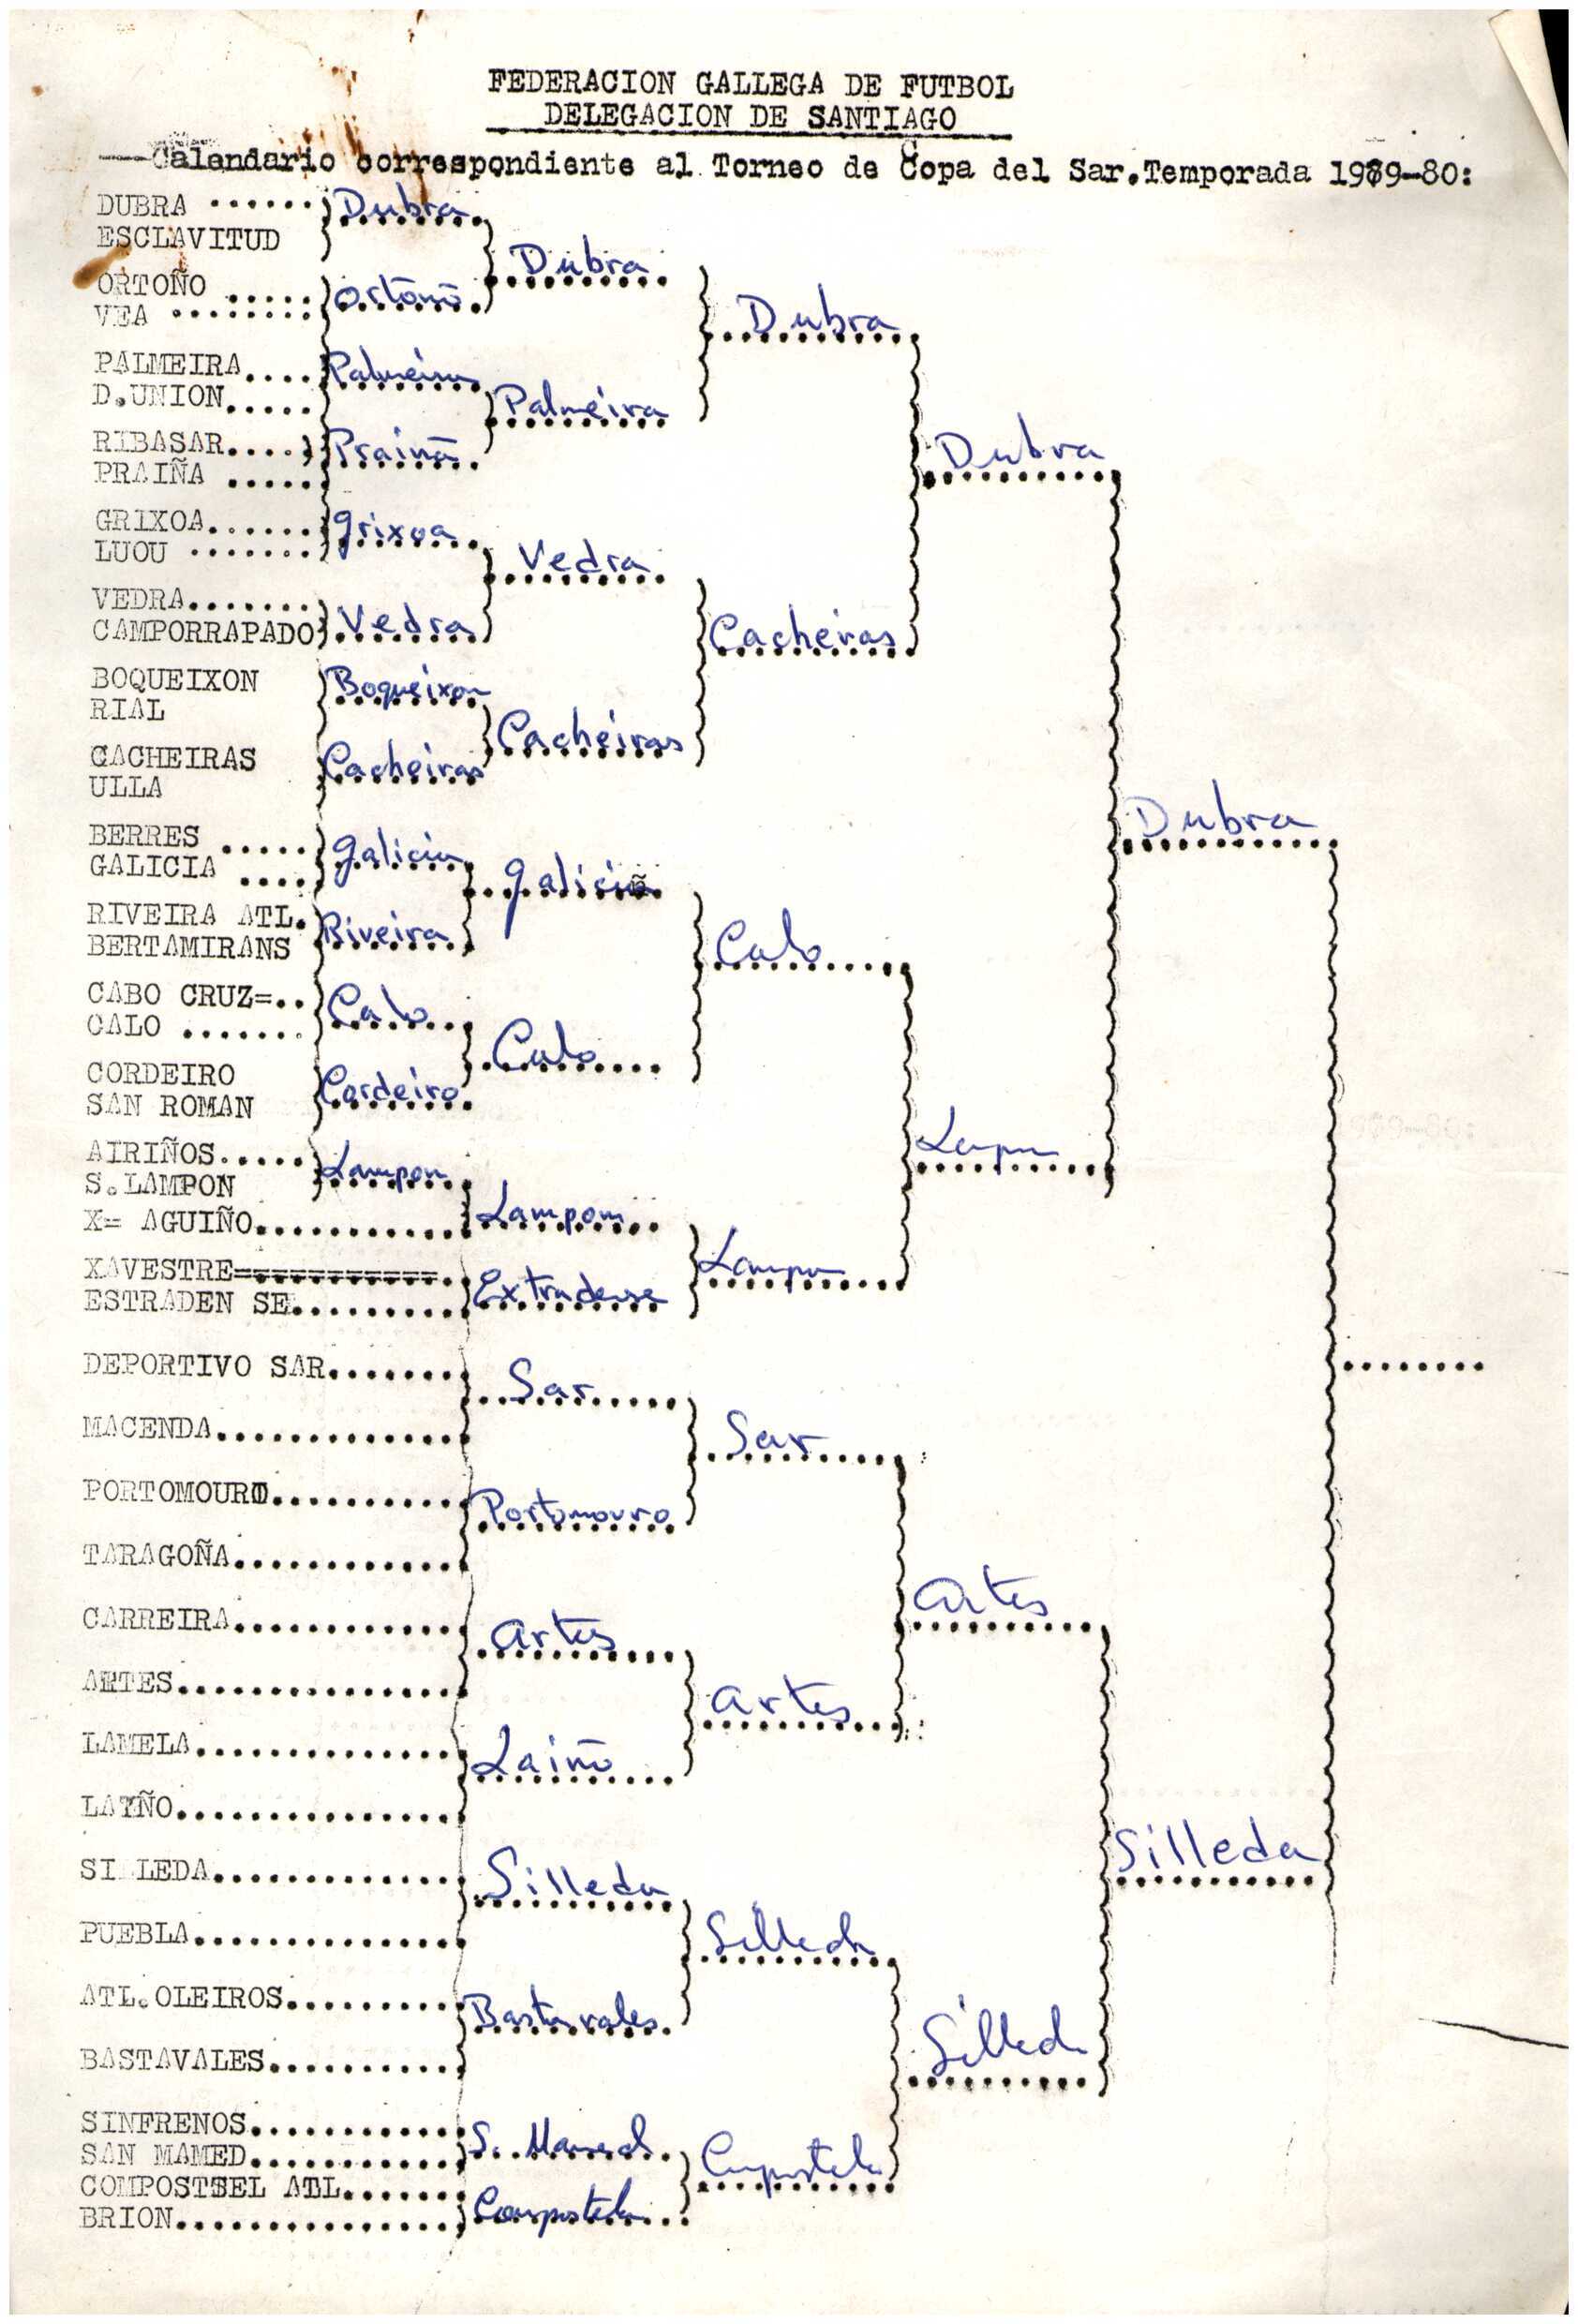 FEDERACION GALLEGA DE FUTBOL
DELEGACION DE SANTIAGO
---Calendario correspondiente al Torneo de Copa del Sar.Temporada 1979-80:
DUBRA ...... Dubra
ESCLAVITUD
Dubra
ORTOÑO ..... Ortoño
VEA ........
Dubra
PALMEIRA.... Palmeira
D.UNION.....
Palmeira
RIBASAR.... Praiña
PRAIÑA .....
Dubra
GRIXOA...... Grixoa
LUOU .......
Vedra
VEDRA.......
CAMPORRAPADO Vedra
Cacheiras
BOQUEIXON Boqueixon
RIAL
Cacheiras
CACHEIRAS Cacheiras
ULLA
Dubra
BERRES ..... Galicia
GALICIA ....
Galicia
RIVEIRA ATL. Riveira
BERTAMIRANS
Calo
CABO CRUZ=.. Calo
CALO .......
Calo
CORDEIRO Cordeiro
SAN ROMAN
AIRIÑOS..... Lampon
S.LAMPON
X= AGUIÑO............ Lampom
XAVESTRE=========== Lampon
ESTRADEN SE.......... Extradense
DEPORTIVO SAR....... Sar
MACENDA.............. Sar
PORTOMOURO........... Portomouro
TARAGOÑA.............
CARREIRA............. Artes
Artes
ARTES................ Artes
LAMELA............... Laiño
LAIÑO................
SILLEDA.............. Silleda Silleda
PUEBLA............... Silleda
ATL.OLEIROS.......... Bastavales
Silleda
BASTAVALES...........
SINFRENOS............ S. Mamed
SAN MAMED............ Compostela
COMPOSTEL ATL....... Compostela
BRION................